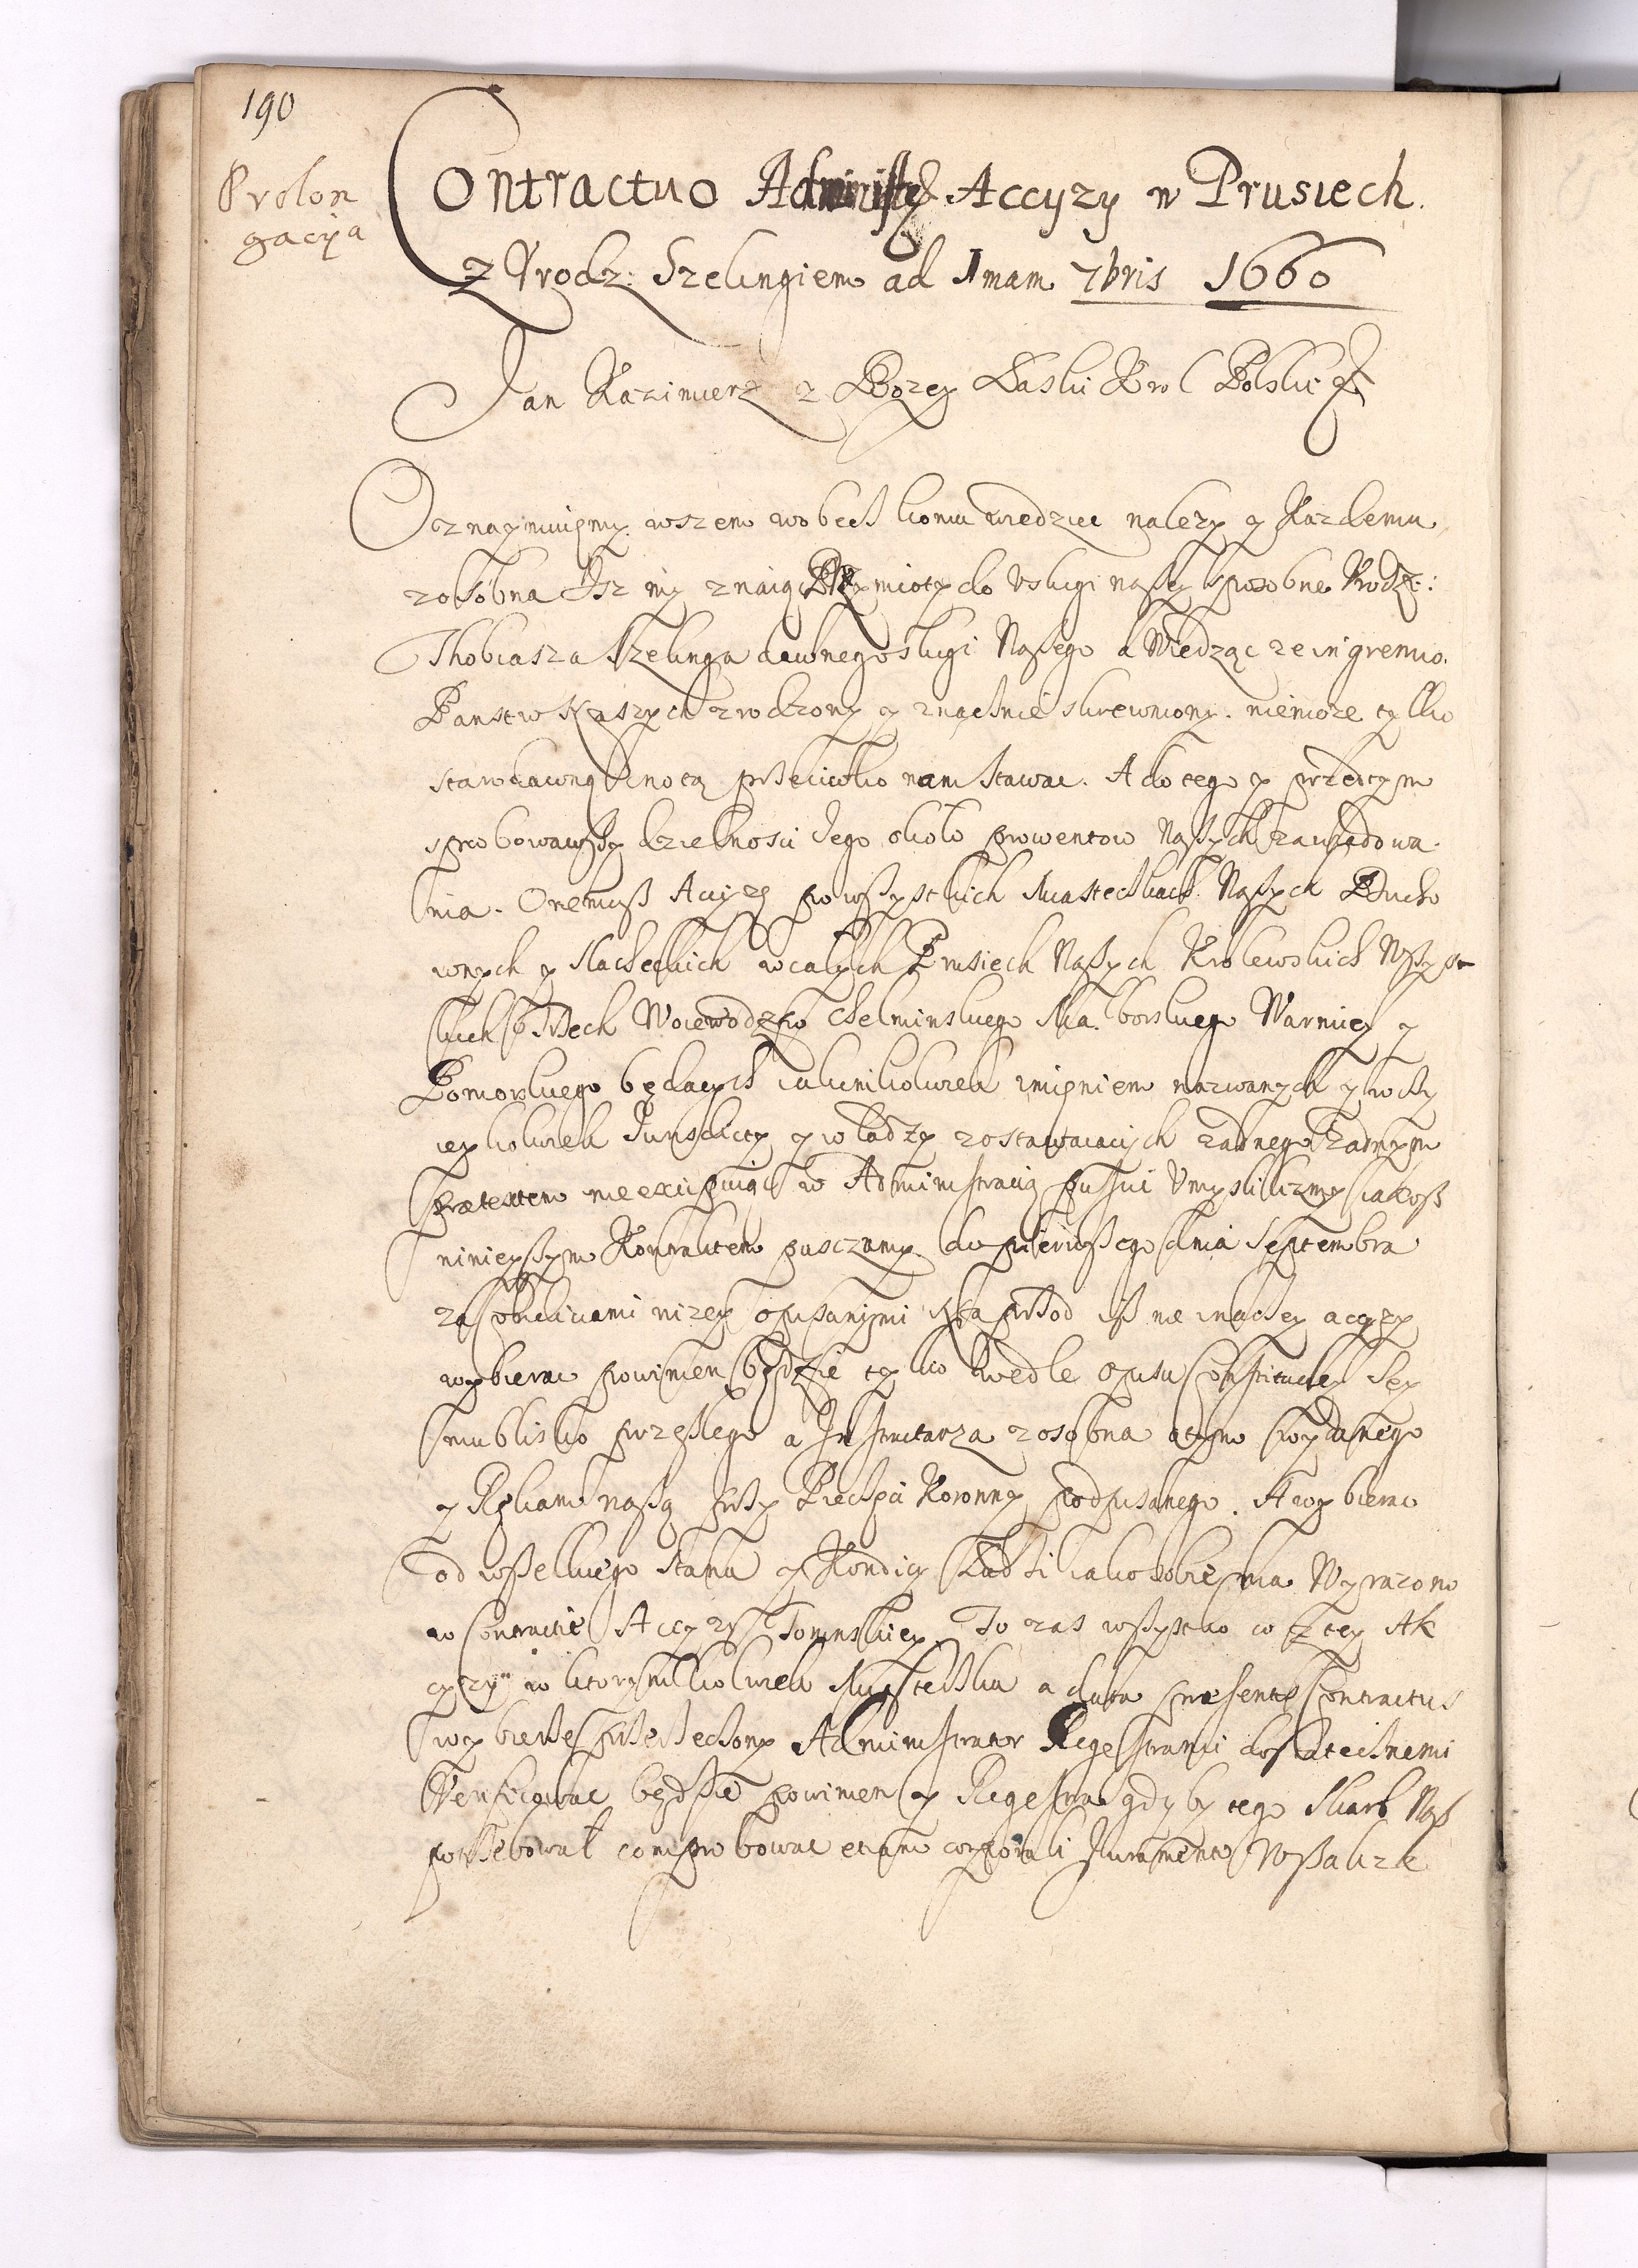 190
Prolon
gacya
Contractus Administ: Accyzy w Prusiech.
z Vrodz: Szelingiem ad 1mam 7bris 1660
Jan Kazimierz z Bozey Laski Krol Polski &
Oznaymuiemy wszem wobecz komu wiedziec nalezy y Kazdemu
zosobna Isz my znaiąc Przymioty do Vslugi naszey sposobne Vrodz:
Thobiasza Szelinga dawnego slugi Naszego a Wiedząc ze in gremio
Panstw Naszych zrodzony y znacznie skrewniony. niemoze tylko
starodawną cnotą przeciwko nam stawac. A do tego y przedtym
sprobowawszy dzielnosci Jego okolo prowentow Naszych zawiadowa
nia. Onemusz Accyzę po wszystkich Miasteczkach Naszych Ducho
wnych y Slacheckich w calych Prusiech Naszych Krolewskich Wszyst
kich Trzech Woiewodztw Chelminskiego Malborskiego Warmiey y
Pomorskiego będących iakimkolwiek imieniem nazwanych y w czy
iey kolwiek Jurisdictiy y wladzy zostawaiących zadnego zadnym
praetextem nie excipuiąc w Administracią puscic Vmyslilizmy iakosz
ninieyszym Kontraktem pusczamy do pierwszego dnia Septembra
za Conditiami nizey opisanymi Naprzod isz nie inaczey accyzy
wybierac powinien będzie tylko wedle opisu Constitucley Sey
mu blisko przeszlego a Instructarza zosobna atym wydanego
y Ręką naszą przy Pieczęci Koronney podpisanego. A wybierac
od wszelkiego stanu y Kondiciy Ludzi iako sobie ma Wyrazono
w Contractie Accyzy Torunskiey. To zas wszystko co z tey Ak
cyzy w ktorymkolwiek Miasteczku a data praesentis Contractus
wybierze przerzeczony Administrator Regestrami dostatecznemi
Verificowac będzie powinien y Regestra gdyby tego Skarb Nasz
potrzebowal comprobowac etiam corporali Juramento Wszakze